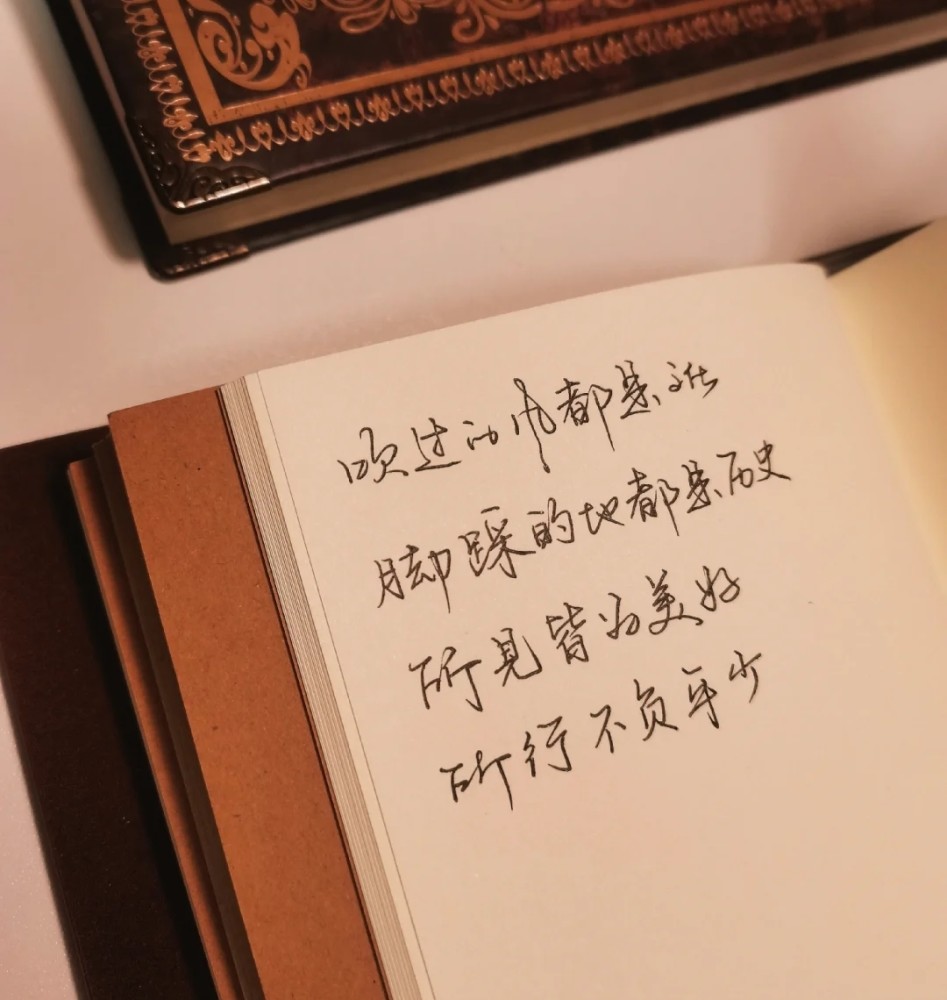 吹过的风都是诗
脚踩的地都是历史
所见皆为美好
所行不负年少